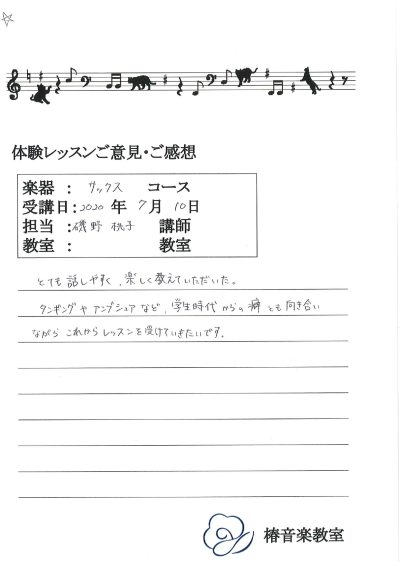 体験レッスンご意見・ご感想
楽器 : サックス コース
受講日:2020 年 7 月 10 日
担当 :磯野 桃子 講師
教室 : 教室
とても話しやすく、楽しく教えていただいた。
タンギングやアンブシュアなど、学生時代からの癖とも向き合い
ながらこれからレッスンを受けていきたいです。
椿音楽教室